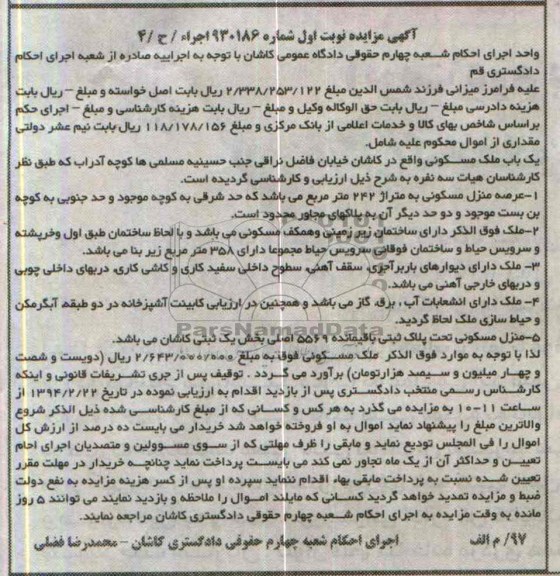 آگهی مزایده نوبت اول شماره ۹۳۰۱۸۶ اجراء / ح /۴
واحد اجرای احکام شعبه چهارم حقوقی دادگاه عمومی کاشان با توجه به اجراییه صادره از شعبه اجرای احکام
دادگستری قم
علیه فرامرز میزانی فرزند شمس الدین مبلغ ۲/۳۳۸/۲۵۳/۱۲۲ ریال بابت اصل خواسته و مبلغ – ریال بابت
هزینه دادرسی مبلغ – ریال بابت حق الوکاله وکیل و مبلغ – ریال بابت هزینه کارشناسی و مبلغ – اجرای حکم
براساس شاخص بهای کالا و خدمات اعلامی از بانک مرکزی و مبلغ ۱۱۸/۱۷۸/۱۵۶ ریال بابت نیم عشر دولتی
مقداری از اموال محکوم علیه شامل.
یک باب ملک مسکونی واقع در کاشان خیابان فاضل نراقی جنب حسینیه مسلمی ها کوچه آدراب که طبق نظر
کارشناسان هیات سه نفره به شرح ذیل ارزیابی و کارشناسی گردیده است.
۱-عرصه منزل مسکونی به متراژ ۲۴۲ متر مربع می باشد که حد شرقی به کوچه موجود و حد جنوبی به کوچه
بن بست موجود و دو حد دیگر آن به پلاکهای مجاور محدود است.
۲-ملک فوق الذکر دارای ساختمان زیر زمینی وهمکف مسکونی می باشد و با لحاظ ساختمان طبق اول وخرپشته
و سرویس حیاط و ساختمان فوقانی سرویس حیاط مجموعا دارای ۳۵۸ متر مربع زیر بنا می باشد.
۳- ملک دارای دیوارهای باربرآجری، سقف آهنی، سطوح داخلی سفید کاری و کاشی کاری، دربهای داخلی چوبی
و دربهای خارجی آهنی می باشد.
۴- ملک دارای انشعابات آب ، برق، گاز می باشد و همچنین در ارزیابی کابینت آشپزخانه در دو طبقه، آبگرمکن
و حیاط سازی ملک لحاظ گردید.
۵-منزل مسکونی تحت پلاک ثبتی باقیمانده ۵۵۶۹ اصلی بخش یک ثبتی کاشان می باشد.
لذا با توجه به موارد فوق الذکر ملک مسکونی فوق به مبلغ ۲/۶۴۳/۰۰۰/۰۰۰ ریال (دویست و شصت
و چهار میلیون و سیصد هزارتومان) برآورد می گردد . توقیف پس از جری تشریفات قانونی و اینکه
کارشناس رسمی منتخب دادگستری پس از بازدید اقدام به ارزیابی نموده در تاریخ ۱۳۹۴/۲/۲۲ از
ساعت ۱۱-۱۰ به مزایده می گذرد به هر کس و کسانی که از مبلغ کارشناسی شده ذیل الذکر شروع
والاترین مبلغ را پیشنهاد نماید اموال به او فروخته خواهد شد خریدار می بایست ده درصد از ارزش کل
اموال را فی المجلس تودیع نماید و مابقی را ظرف مهلتی که از سوی مسوولین و متصدیان اجرای احام
تعیین و حداکثر آن از یک ماه تجاور نمی کند می بایست پرداخت نماید چنانچه خریدار در مهلت مقرر
تعیین شده نسبت به پرداخت مابقی بهاء اقدام ننماید سپرده او پس از کسر هزینه مزایده به نفع دولت
ضبط و مزایده تمدید خواهد گردید کسانی که مایلند اموال را ملاحظه و بازدید نمایند می توانند ۵ روز
مانده به وقت مزایده به اجرای احکام شعبه چهارم حقوقی دادگستری کاشان مراجعه نمایند.
۹۷/ م الف اجرای احکام شعبه چهارم حقوقی دادگستری کاشان – محمدرضا فضلی
ParsNamadData